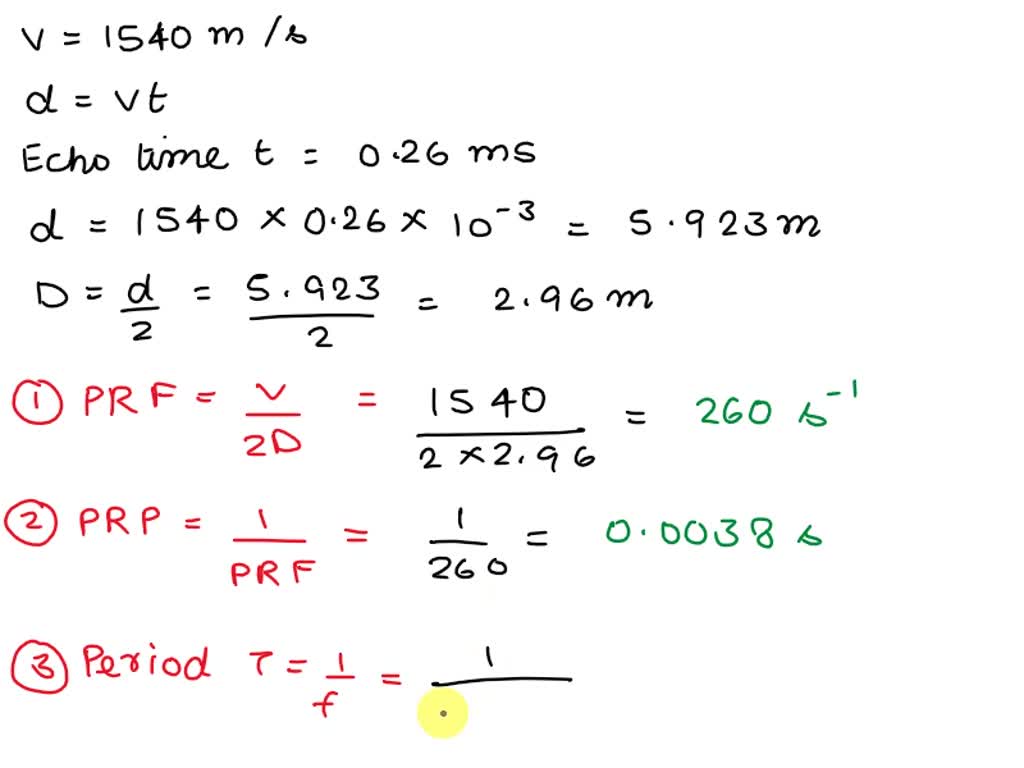 V = 1540 m/s
d = vt
Echo time t = 0.26 ms
d = 1540 × 0.26 × 10⁻³ = 5.923m
D = d/2 = 5.923/2 = 2.96 m
① PRF = V/2D = 1540/2×2.96 = 260 s⁻¹
② PRP = 1/PRF = 1/260 = 0.0038 s
③ Period T = 1/f = 1/